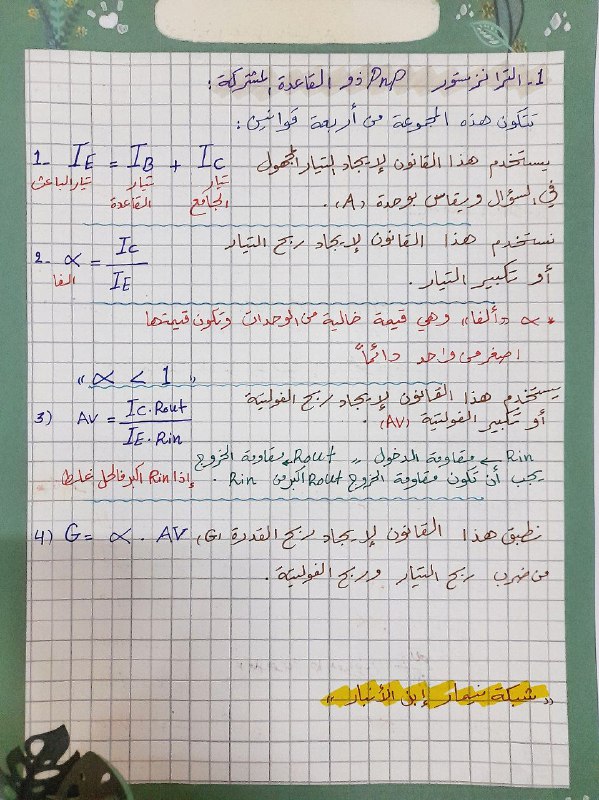 1- الترانزستور PnP ذو القاعدة المشتركة :
تتكون هذه المجموعة من أربعة قوانين :
1- IE = IB + IC يستخدم هذا القانون لإيجاد التيار المجهول
تيار الباعث تيار القاعدة تيار الجامع
في السؤال ويقاس بوحدة (A).
2- ∝ = IC / IE نستخدم هذا القانون لإيجاد ربح التيار
الفا
أو تكبير التيار .
* ∝ «ألفا» وهي قيمة خالية من الوحدات وتكون قيمتها
اصغر من واحد دائماً
« ∝ < 1 »
3) AV = IC . Rout / IE . Rin يستخدم هذا القانون لإيجاد ربح الفولتية
أو تكبير الفولتية (AV) .
Rin ← مقاومة الدخول ,, Rout ← مقاومة الخروج
يجب أن تكون مقاومة الخروج Rout اكبر من Rin . إذا Rin أكبر فالحل غلط
4) G = ∝ . AV نطبق هذا القانون لإيجاد ربح القدرة (G)
من ضرب ربح التيار وربح الفولتية .
« شبكة نيمار إبن الأنبار »